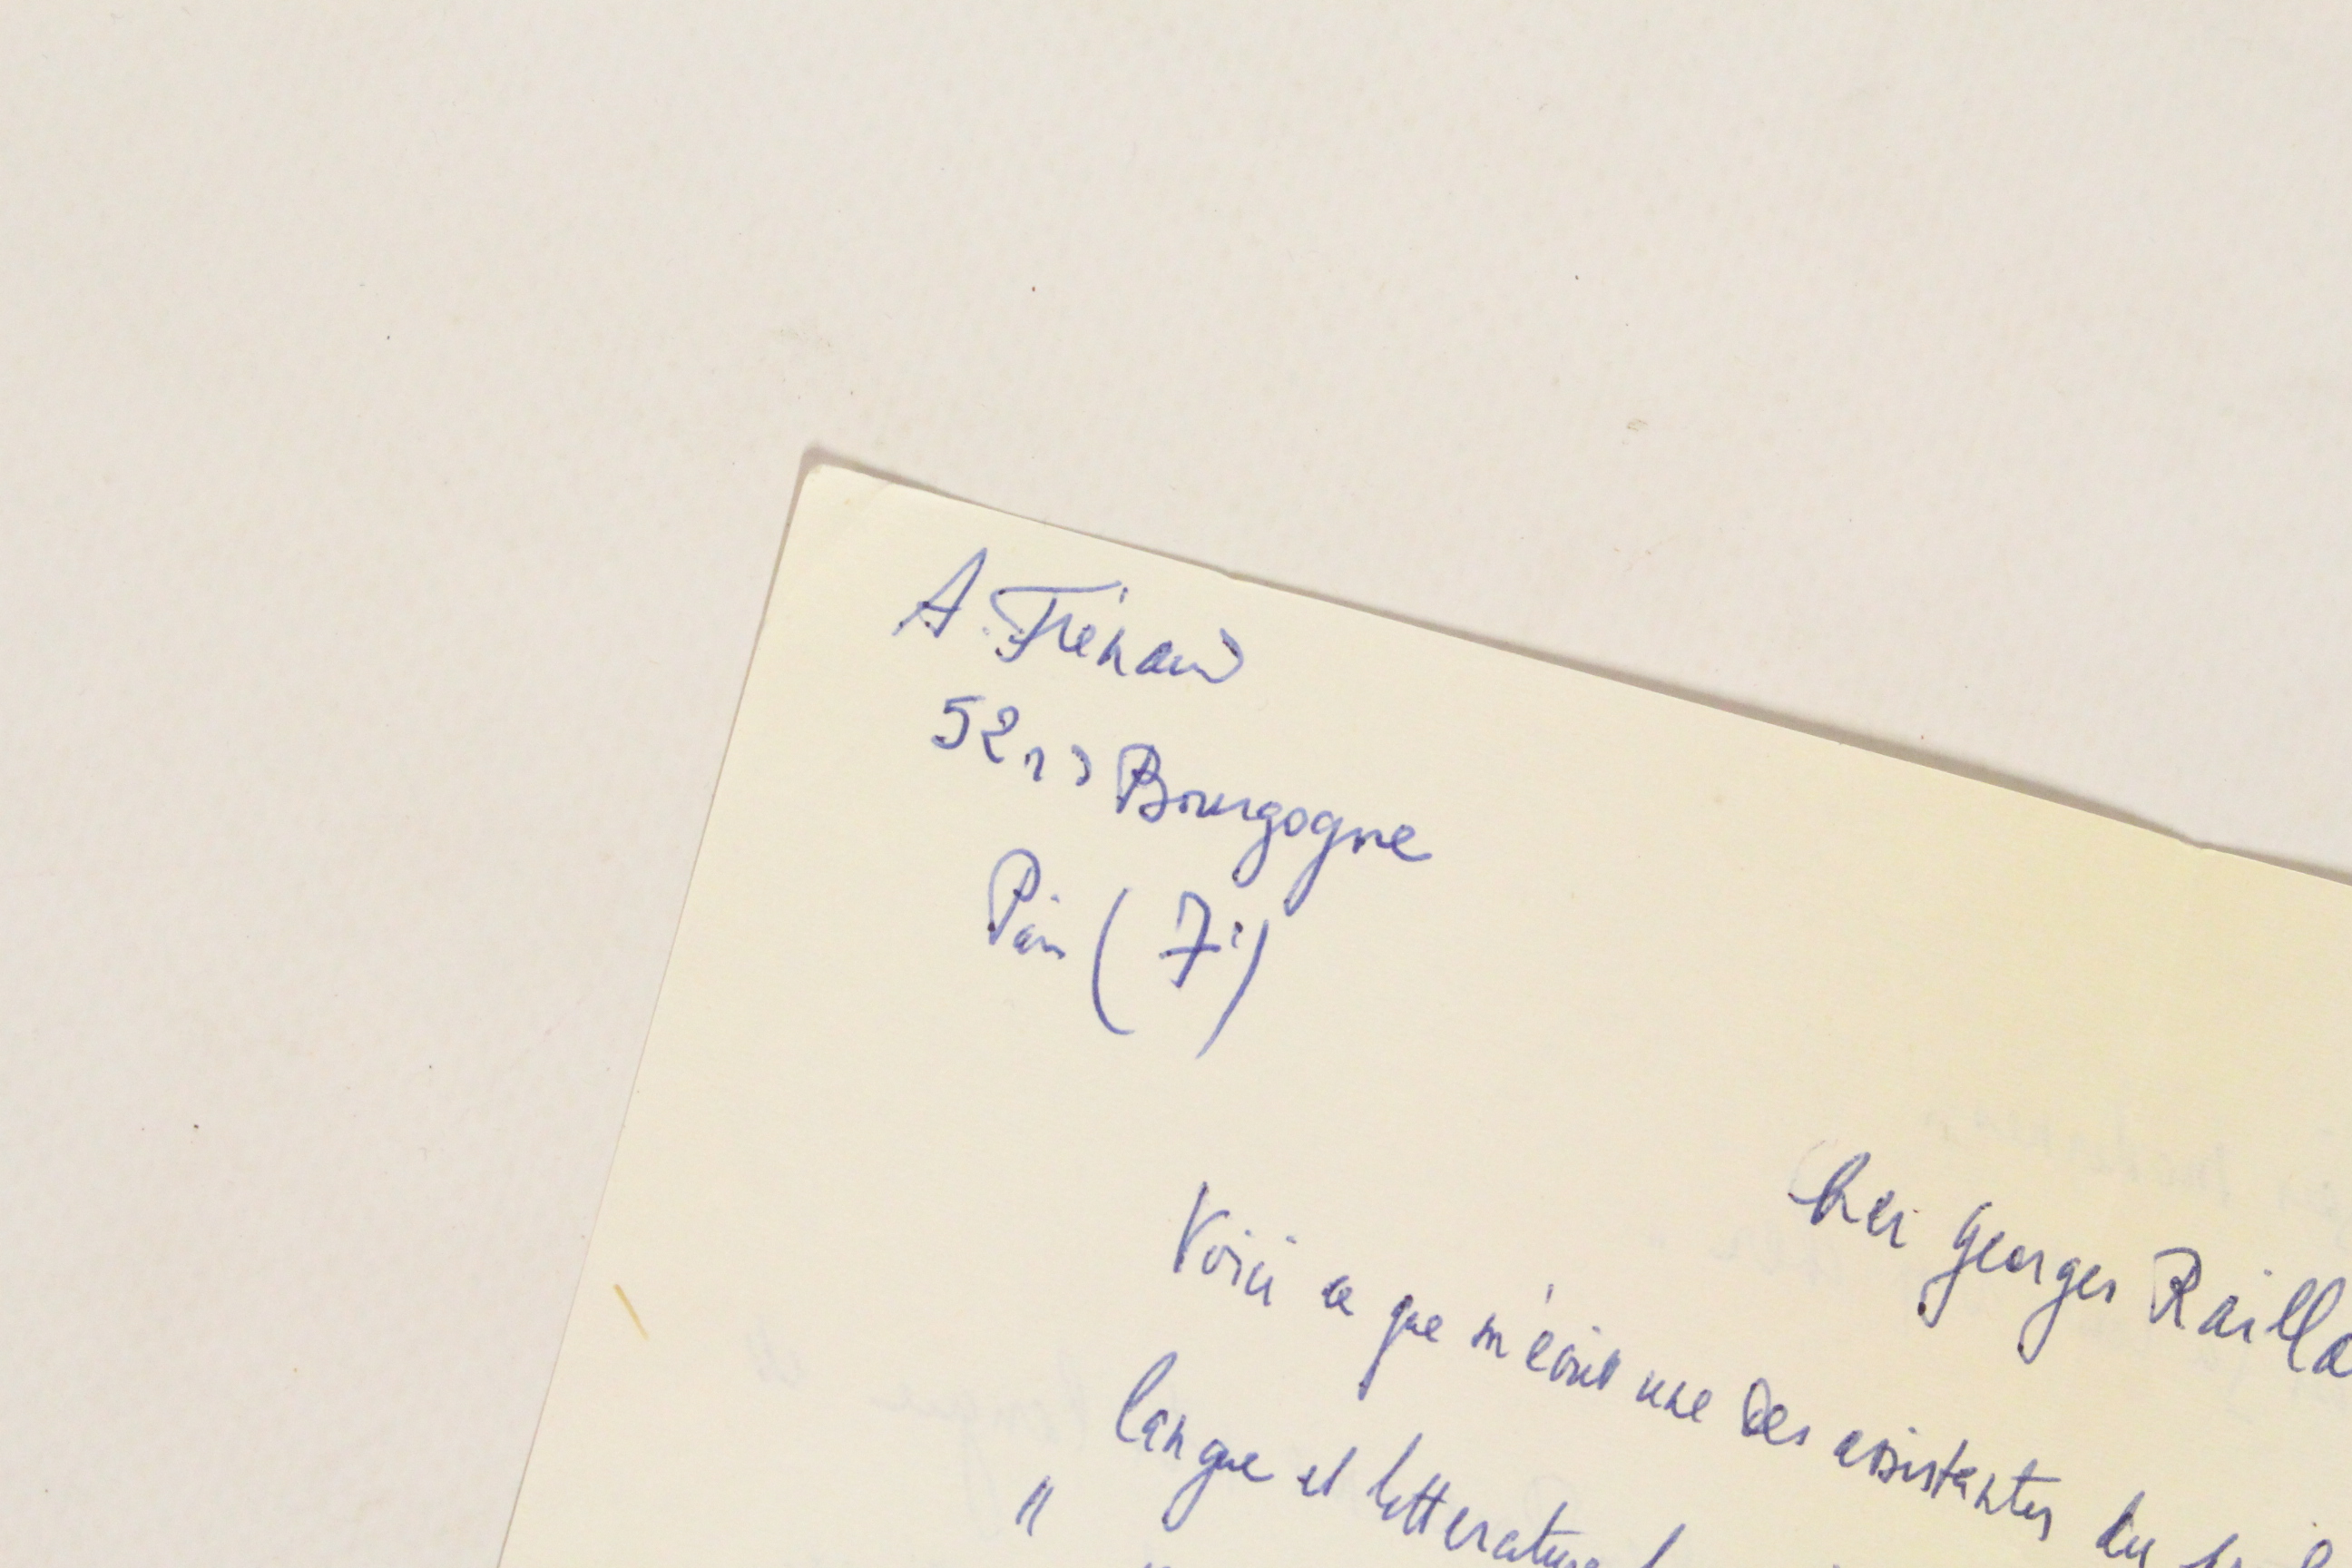 A. Frénaud
52 r d Bourgogne
Paris (7e)
Cher Georges Railla
Voici ce que m'écrit une des assistantes du
langue et littérature
"